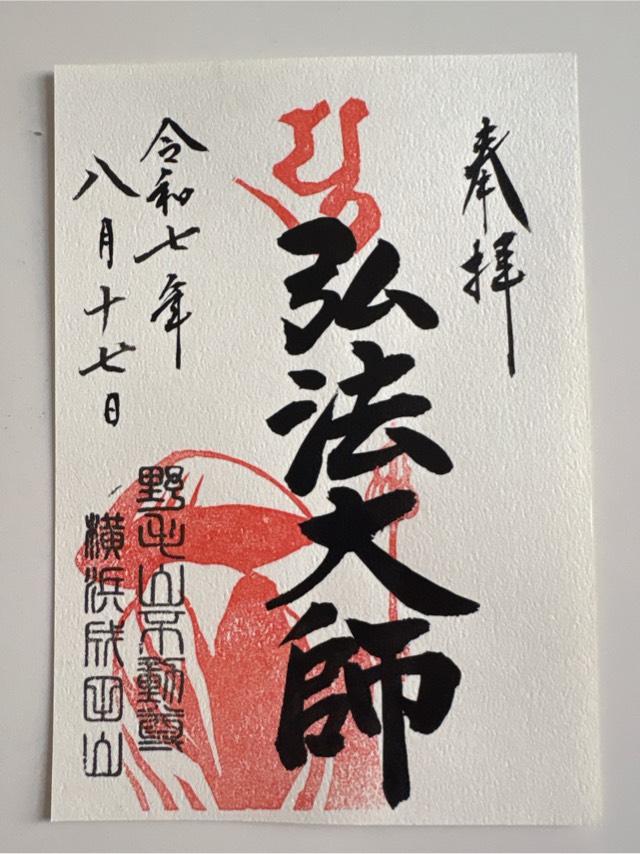 奉拝
弘法大師
令和七年
八月十七日
野毛山不動尊
横浜成田山